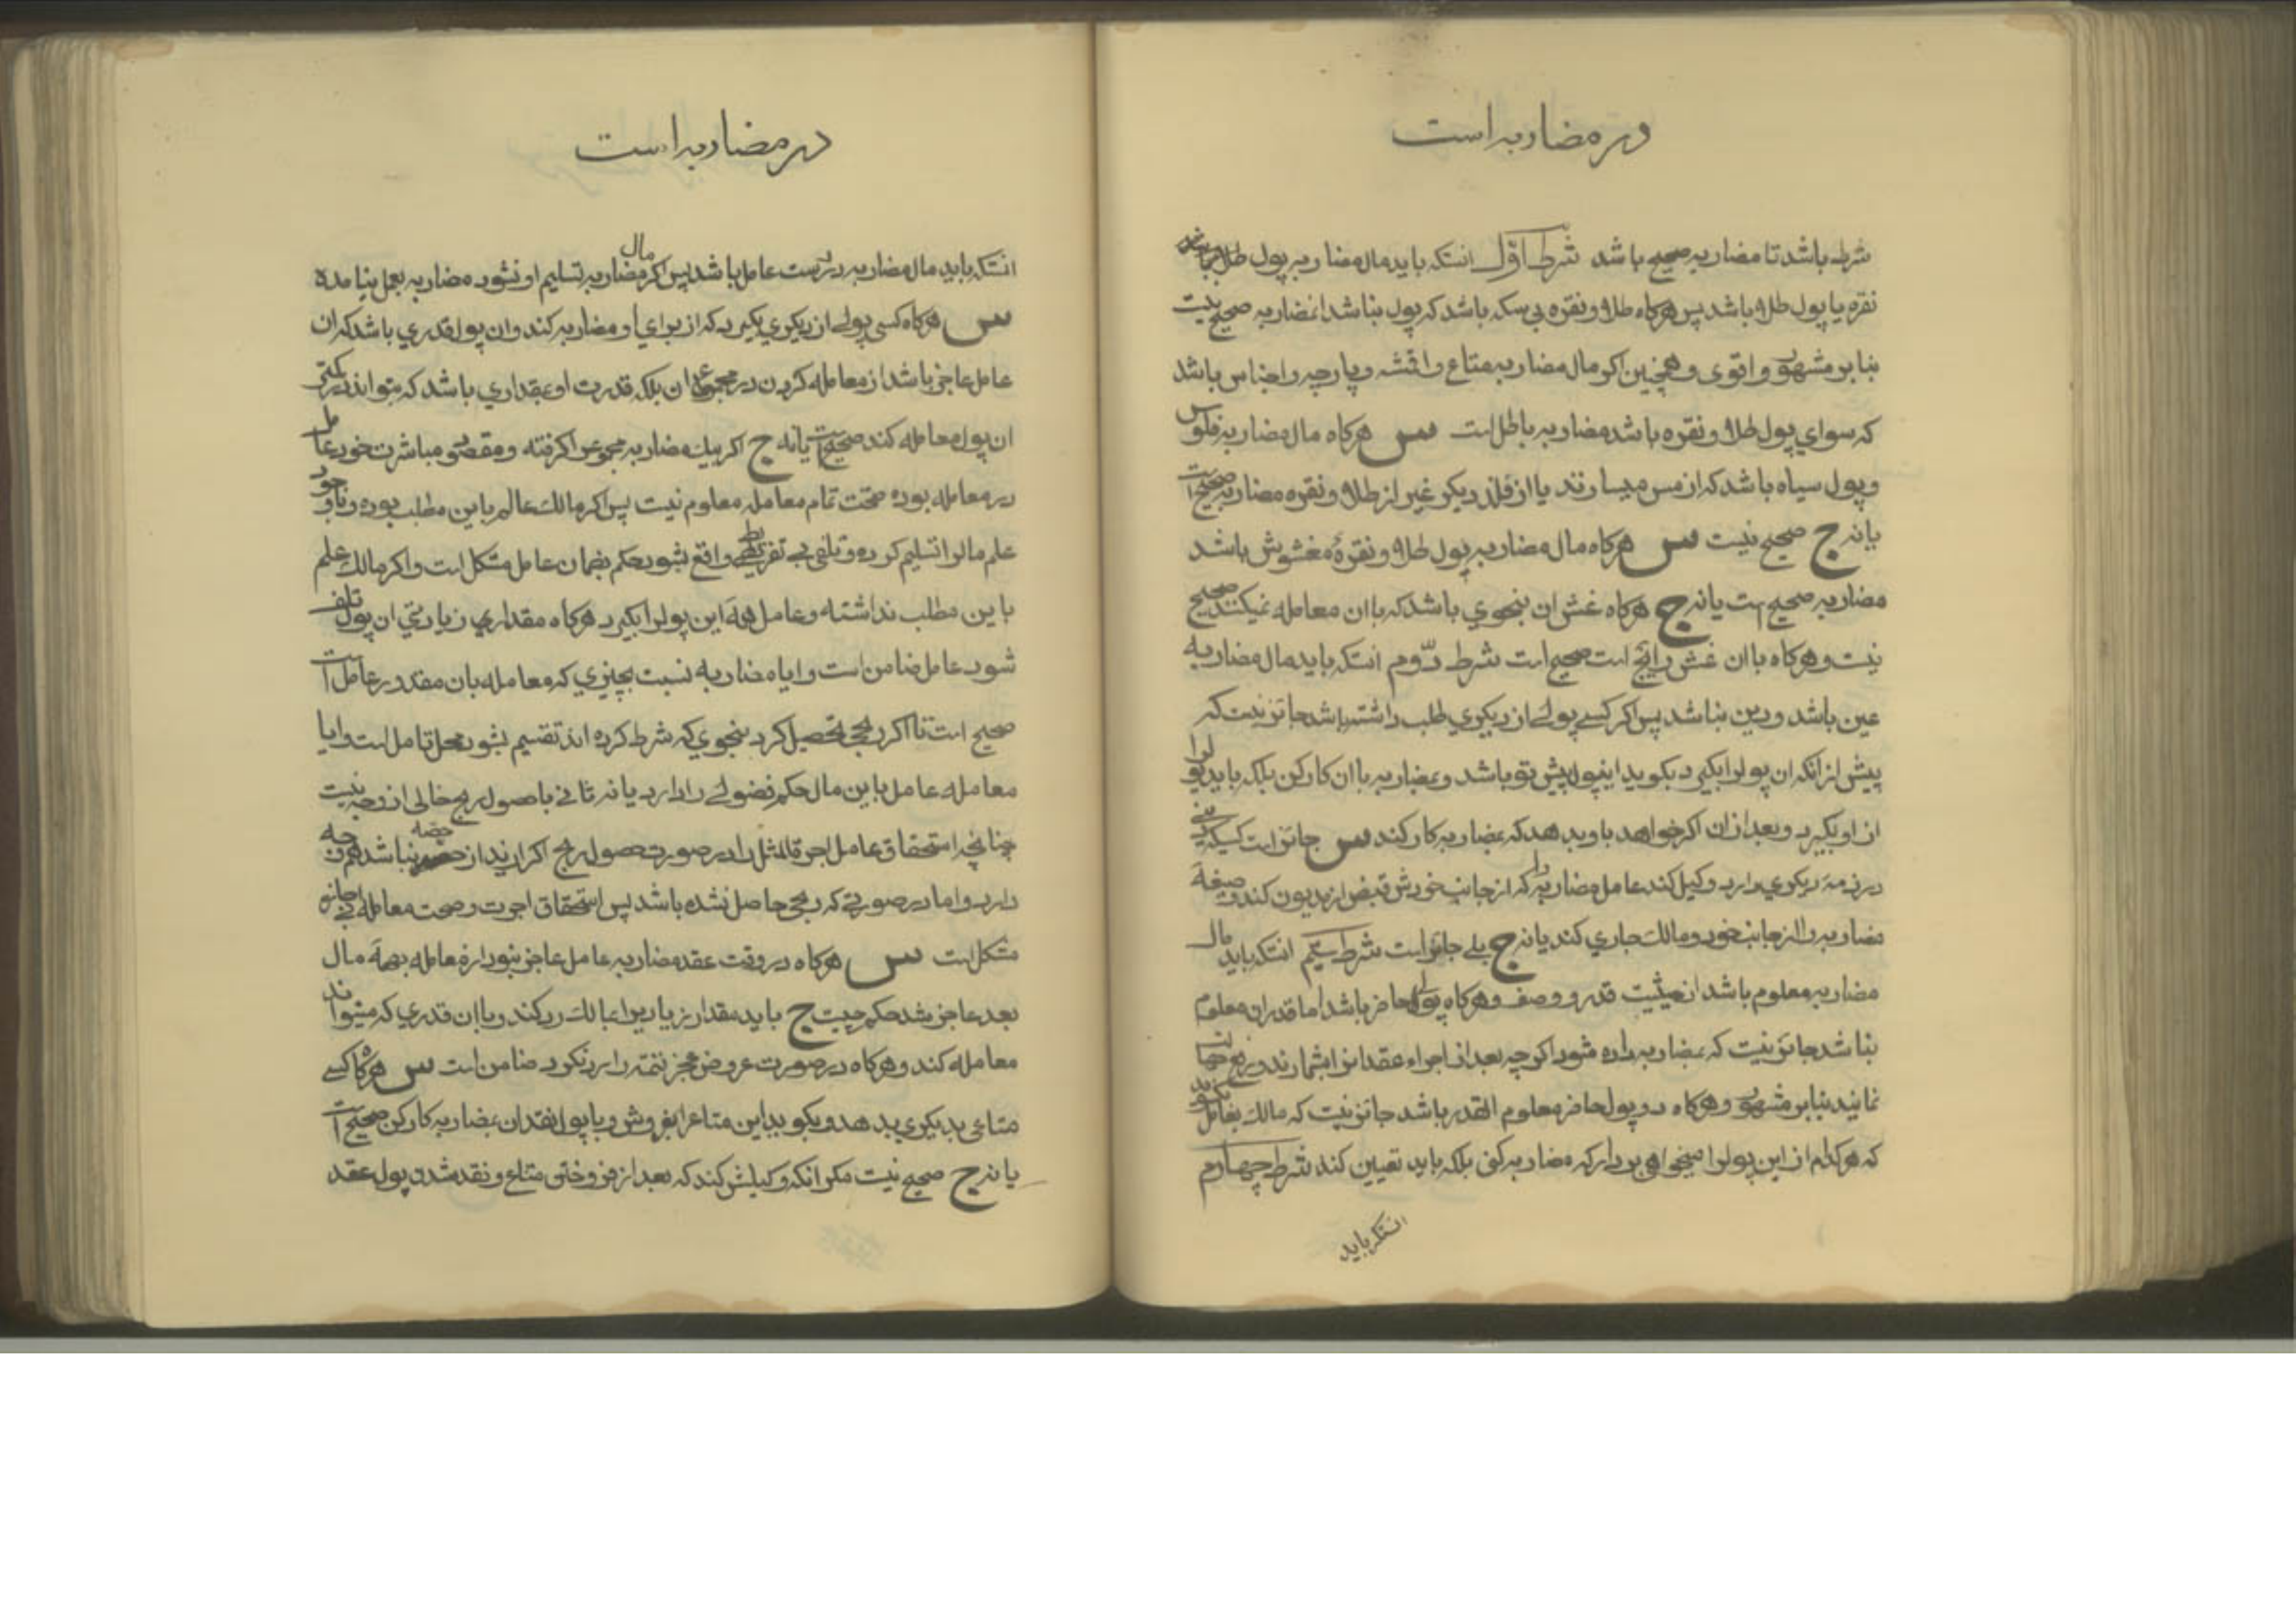 در مضاربه است
شرط باشد تا مضاربه صحیح باشد شرط اول انستکه باید مال مضاربه پول طلا
نقره یا پول طلا باشد پس هرکاه طلا و نقره بی سکه باشد که پول نباشد مضاربه صحیح نیست
بنابر مشهور و اقوی و همچنین اکر مال مضاربه متاع و اقمشه و پارچه و اجناس باشد
که سوای پول طلا و نقره باشد مضاربه باطل است س هرکاه مال مضاربه فلوس
و پول سیاه باشد که از مس میسازند یا از فلز دیکر غیر از طلا و نقره مضاربه صحیح است
یا نه ج صحیح نیست س هرکاه مال مضاربه پول طلا و نقرهٔ مغشوش باشد
مضاربه صحیح است یا نه ج هرکاه غش ان بنحوی باشد که با ان معامله نمیکنند صحیح
نیست و هرکاه با ان غش رایج است صحیح است شرط دوم انستکه باید مال مضاربه
عین باشد و دین نباشد پس اکر کسی پولی از دیکری طلب داشته باشد جائز نیست که
پیش از انکه ان پول را بکیرد بکوید اینپول پیش تو باشد و بمضاربه با ان کار کن بلکه باید پول را
از او بکیرد و بعد از ان اکر خواهد باو بدهد که بمضاربه کار کند س جائز است کسیکه
در ذمهٔ دیکری دارد وکیل کند عامل مضاربه را که از جانب خودش قبض از مدیون کند و صیغهٔ
مضاربه را از جانب خود و مالک جاری کند یا نه ج بلی جائز است شرط سیم انستکه باید مال
مضاربه معلوم باشد از حیثیت قدر و وصف و هرکاه پولی حاضر باشد اما قدر ان معلوم
نباشد جائز نیست که بمضاربه داده شود اکرچه بعد از اجراء عقد انرا بشمارند و
نمایند بنابر مشهور و هرکاه دو پول حاضر معلوم القدر باشد جائز نیست که مالک بعامل بکوید
که هر کدام از این پول را میخواهی بردار که مضاربه کنی بلکه باید تعیین کند شرط چهارم
انستکه باید
در مضاربه است
انستکه باید مال مضاربه در دست عامل باشد پس اکر مال مضاربه تسلیم او نشود مضاربه بعمل نیامده
س هرکاه کسی پولی از دیکری بکیرد که از برای او مضاربه کند و ان پول قدری باشد که ان
عامل عاجز باشد از معامله کردن در مجموع ان بلکه قدرت او بمقداری باشد که بتواند در کمتر
ان پول معامله کند صحیح است یا نه ج اکر بیک مضاربه مجموع را کرفته و مقصود مباشرت خود عامل
در معامله بوده صحت تمام معامله معلوم نیست پس اکر مالک عالم باین مطلب بوده و با وجود
علم مال را تسلیم کرده و تلفی بی تفریط واقع شود حکم بضمان عامل مشکل است و اکر مالک علم
باین مطلب نداشته و عامل همهٔ این پول را بکیرد هرکاه مقداری زیادتی ان پول تلف
شود عامل ضامن است و ایا مضاربه نسبت بچیزی که معامله بان مقدور عامل است
صحیح است تا اکر ربحی تحصیل کرد بنحوی که شرط کرده اند تقسیم شود محل تامل است و ایا
معامله عامل باین مال حکم فضولی را دارد یا نه ثانی با حصول ربح خالی از وجه نیست
چنانچه استحقاق عامل اجرة المثل را در صورت حصول ربح اکر ازید از حصه نباشد هم وجه
دارد و اما در صورتی که ربحی حاصل نشده باشد پس استحقاق اجرت و صحت معامله بی اجازه
مشکل است س هرکاه در وقت عقد مضاربه عامل عاجز نبود از معامله بهمهٔ مال
بعد عاجز شد حکم چیست ج باید مقدار زیاد را بمالک رد کند و با ان قدری که میتواند
معامله کند و هرکاه در صورت عروض عجز تتمه را رد نکرد ضامن است س هرکاه کسی
متاعی بدیکری بدهد و بکوید این متاع را بفروش و با پول نقد ان بمضاربه کار کن صحیح است
یا نه ج صحیح نیست مکر انکه وکیلش کند که بعد از فروختن متاع و نقد شدن پول عقد